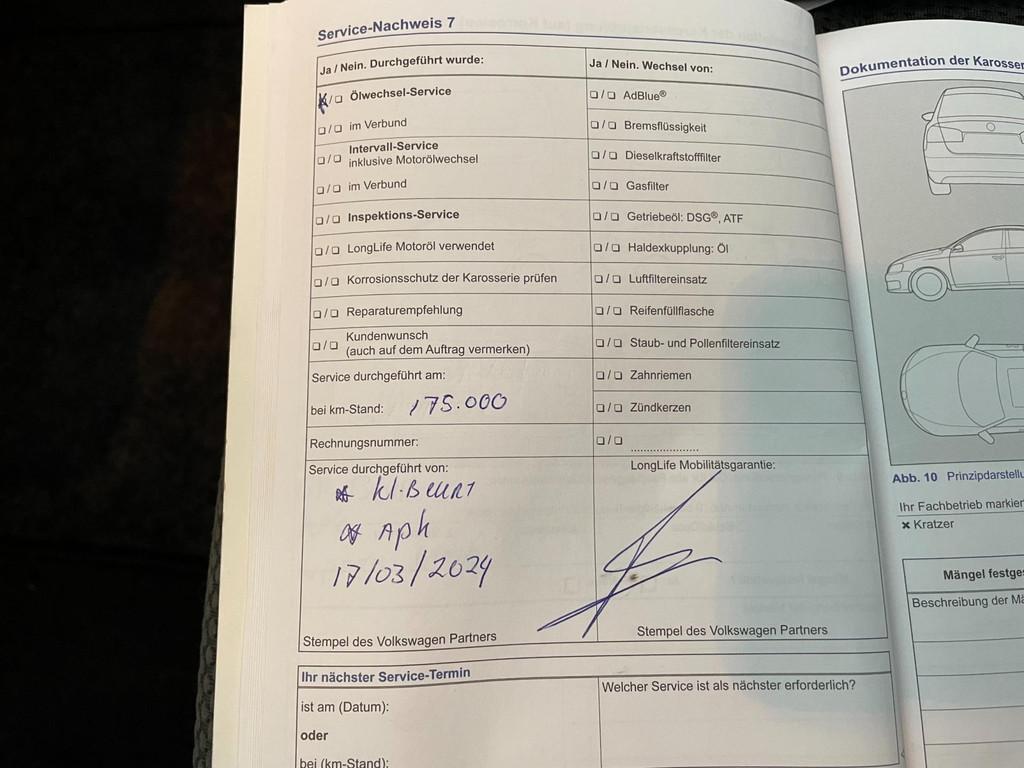 Service-Nachweis 7
Ja / Nein. Durchgeführt wurde:
❏/❏ Ölwechsel-Service
❏/❏ im Verbund
❏/❏ Intervall-Service
inklusive Motorölwechsel
❏/❏ im Verbund
❏/❏ Inspektions-Service
❏/❏ LongLife Motoröl verwendet
❏/❏ Korrosionsschutz der Karosserie prüfen
❏/❏ Reparaturempfehlung
❏/❏ Kundenwunsch
(auch auf dem Auftrag vermerken)
Service durchgeführt am:
bei km-Stand: 175.000
Rechnungsnummer:
Service durchgeführt von:
kl. Beurt
Apk
17/03/2024
Stempel des Volkswagen Partners
Ja / Nein. Wechsel von:
❏/❏ AdBlue®
❏/❏ Bremsflüssigkeit
❏/❏ Dieselkraftstofffilter
❏/❏ Gasfilter
❏/❏ Getriebeöl: DSG®, ATF
❏/❏ Haldexkupplung: Öl
❏/❏ Luftfiltereinsatz
❏/❏ Reifenfüllflasche
❏/❏ Staub- und Pollenfiltereinsatz
❏/❏ Zahnriemen
❏/❏ Zündkerzen
❏/❏ .....................
LongLife Mobilitätsgarantie:
Stempel des Volkswagen Partners
Ihr nächster Service-Termin
ist am (Datum):
oder
bei (km-Stand):
Welcher Service ist als nächster erforderlich?
Dokumentation der
Abb. 10
Ihr Fachbetrieb
✖ Kratzer
Mängel
Beschreibung der